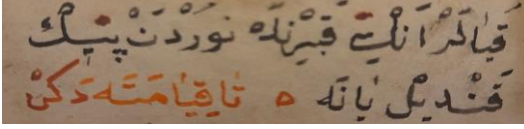 قيالر انك قبرنده نوردن بيك
قنديل يانه ه تا قيامته دكن